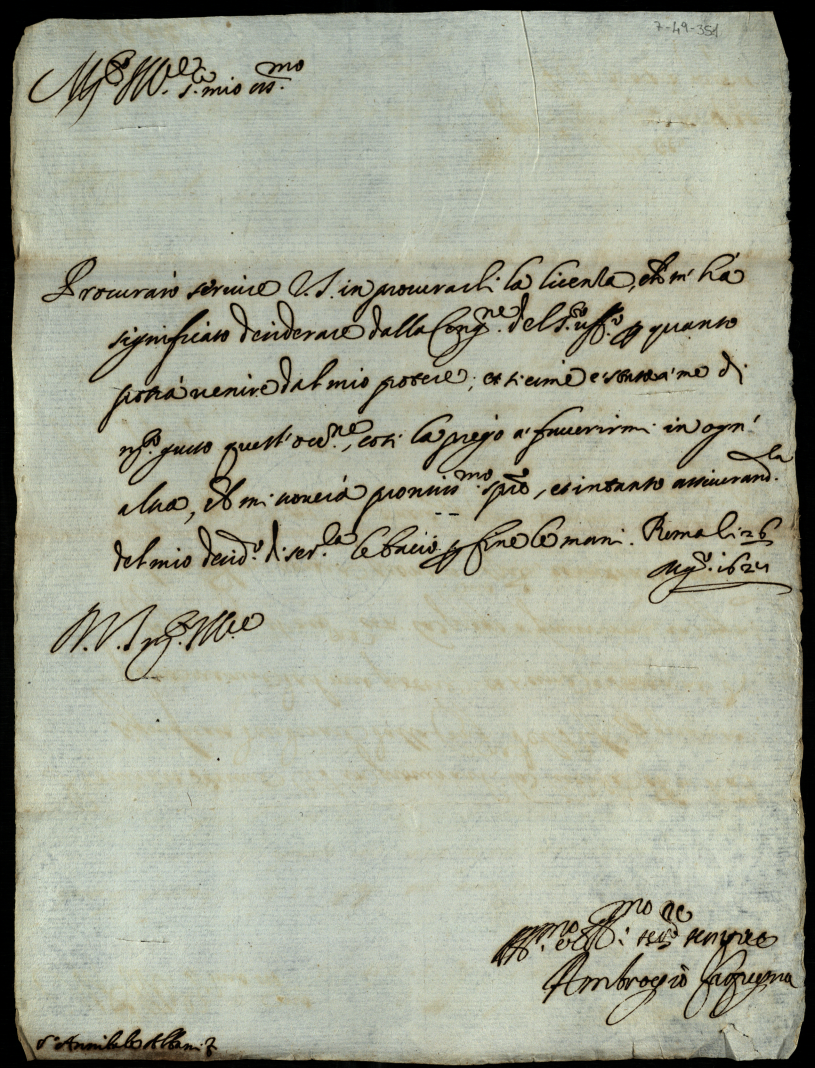 7-49-351
s.r mio oss.mo
Procurarò servire V.S. in procurarli la licenza, che mi hà
significato desiderare dalla Cong.ne del S.to uff.o per quanto
potrà venire dal mio potere; et si come è stata a me di
gusto quest'occ.ne, così la prego a' favorirmi in ogn'
altra, che mi troverà prontiss.mo sp.o, et intanto assicurand.la
del mio desid.o di ser.la le bacio per fine le mani. Roma li 26
Mag.o 1624
D. V.S. M.to Ill.re
ser.re sempre
Ambrogio
S.r Annibale Albani